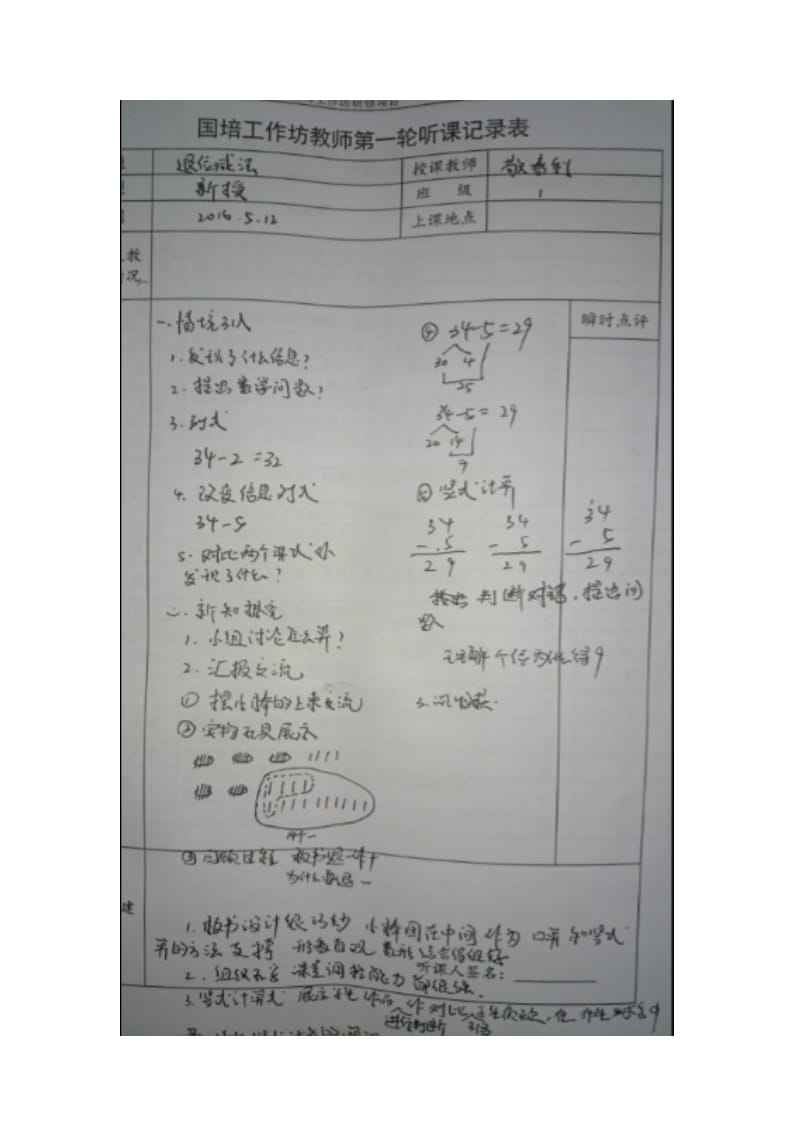 工作坊研修项目
国培工作坊教师第一轮听课记录表
退位减法 授课教师
新授 班 级 1
2016.5.12 上课地点
教
况
瞬时点评
一.情境引入
1.发现了什么信息?
2.提出数学问题?
3.列式
34-2=32
4.改变信息列式
34-5
5.对比两个算式你
发现了什么?
二.新知探究
1.小组讨论怎么算?
2.汇报交流
① 摆小棒的上来交流
② 实物 展示
③ 回顾过程 板书退一作十
为什么要退一
④ 34-5=29
30 4
25
34-5=29
20 14
9
⑤ 竖式计算
34 34 34
- 5 - 5 - 5
29 29 29
判断对错,提出问
题
理解个位为什么得9
3.
建
1.板书设计很巧妙 小棒图在中间 作为 口算和竖式
算的方法支撑 形象直观 数形结合得很好
2.组织 课堂调控能力 都很强.
听课人签名:
3.竖式计算 展示 对比
进行判断